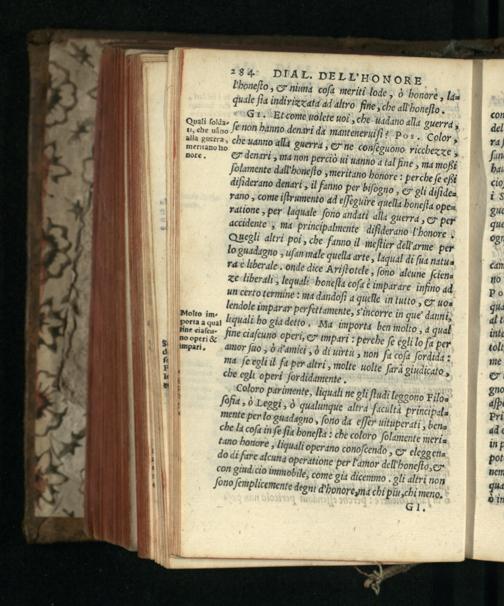 284 DIAL. DELL'HONORE
l'honesto, & niuna cosa meriti lode, ò honore, la-
quale sia indirizzata ad altro fine, che all'honesto.
GI. Et come uolete uoi, che uadano alla guerra,
se non hanno denari da manteneruisi? POS. Color,
che uanno alla guerra, & ne conseguono ricchezze,
& denari, ma non perciò ui uanno a tal fine, ma mossi
solamente dall'honesto, meritano honore: perche se essi
disiderano denari, il fanno per bisogno, & gli diside-
rano, come istrumento ad esseguire quella honesta ope-
ratione, per laquale sono andati alla guerra, & per
accidente, ma principalmente disiderano l'honore.
Quegli altri poi, che fanno il mestier dell'arme per
lo guadagno, usan male quella arte, laqual di sua natu-
ra è liberale. onde dice Aristotele, sono alcune scien-
ze liberali, lequali honesta cosa è imparare infino ad
un certo termine: ma dandosi a quelle in tutto, & uo-
lendole imparar perfettamente, s'incorre in que' danni,
lequali ho gia detto. Ma importa ben molto, a qual
fine ciascuno operi, & impari: perche se egli lo fa per
amor suo, ò d'amici, ò di uirtu, non fa cosa sordida:
ma se egli il fa per altri, molte uolte sarà giudicato,
che egli operi sordidamente.
Coloro parimente, liquali ne gli studi leggono Filo-
sofia, ò Leggi, ò qualunque altra facultà principal-
mente per lo guadagno, sono da esser uituperati, ben-
che la cosa in se sia honesta: che coloro solamente meri-
tano honore, liquali operano conoscendo, & eleggen-
do di fare alcuna operatione per l'amor dell'honesto, &
con giudicio immobile, come gia dicemmo. gli altri non
sono semplicemente degni d'honore, ma chi piu, chi meno.
GI.
Quali solda-
ti, che uāno
alla guerra,
meritano ho
nore.
Molto im-
porta a qual
fine ciascu-
no operi &
impari.